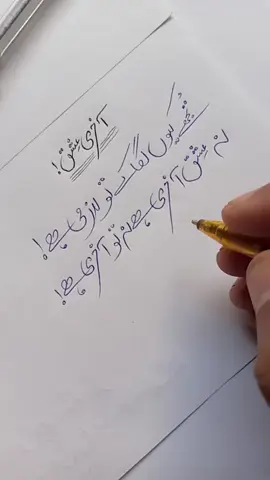 آخری عشق!
تجھے کیوں لگا کہ تو لازمی ہے!
نہ عشق آخری ہے نہ تو آخری ہے!